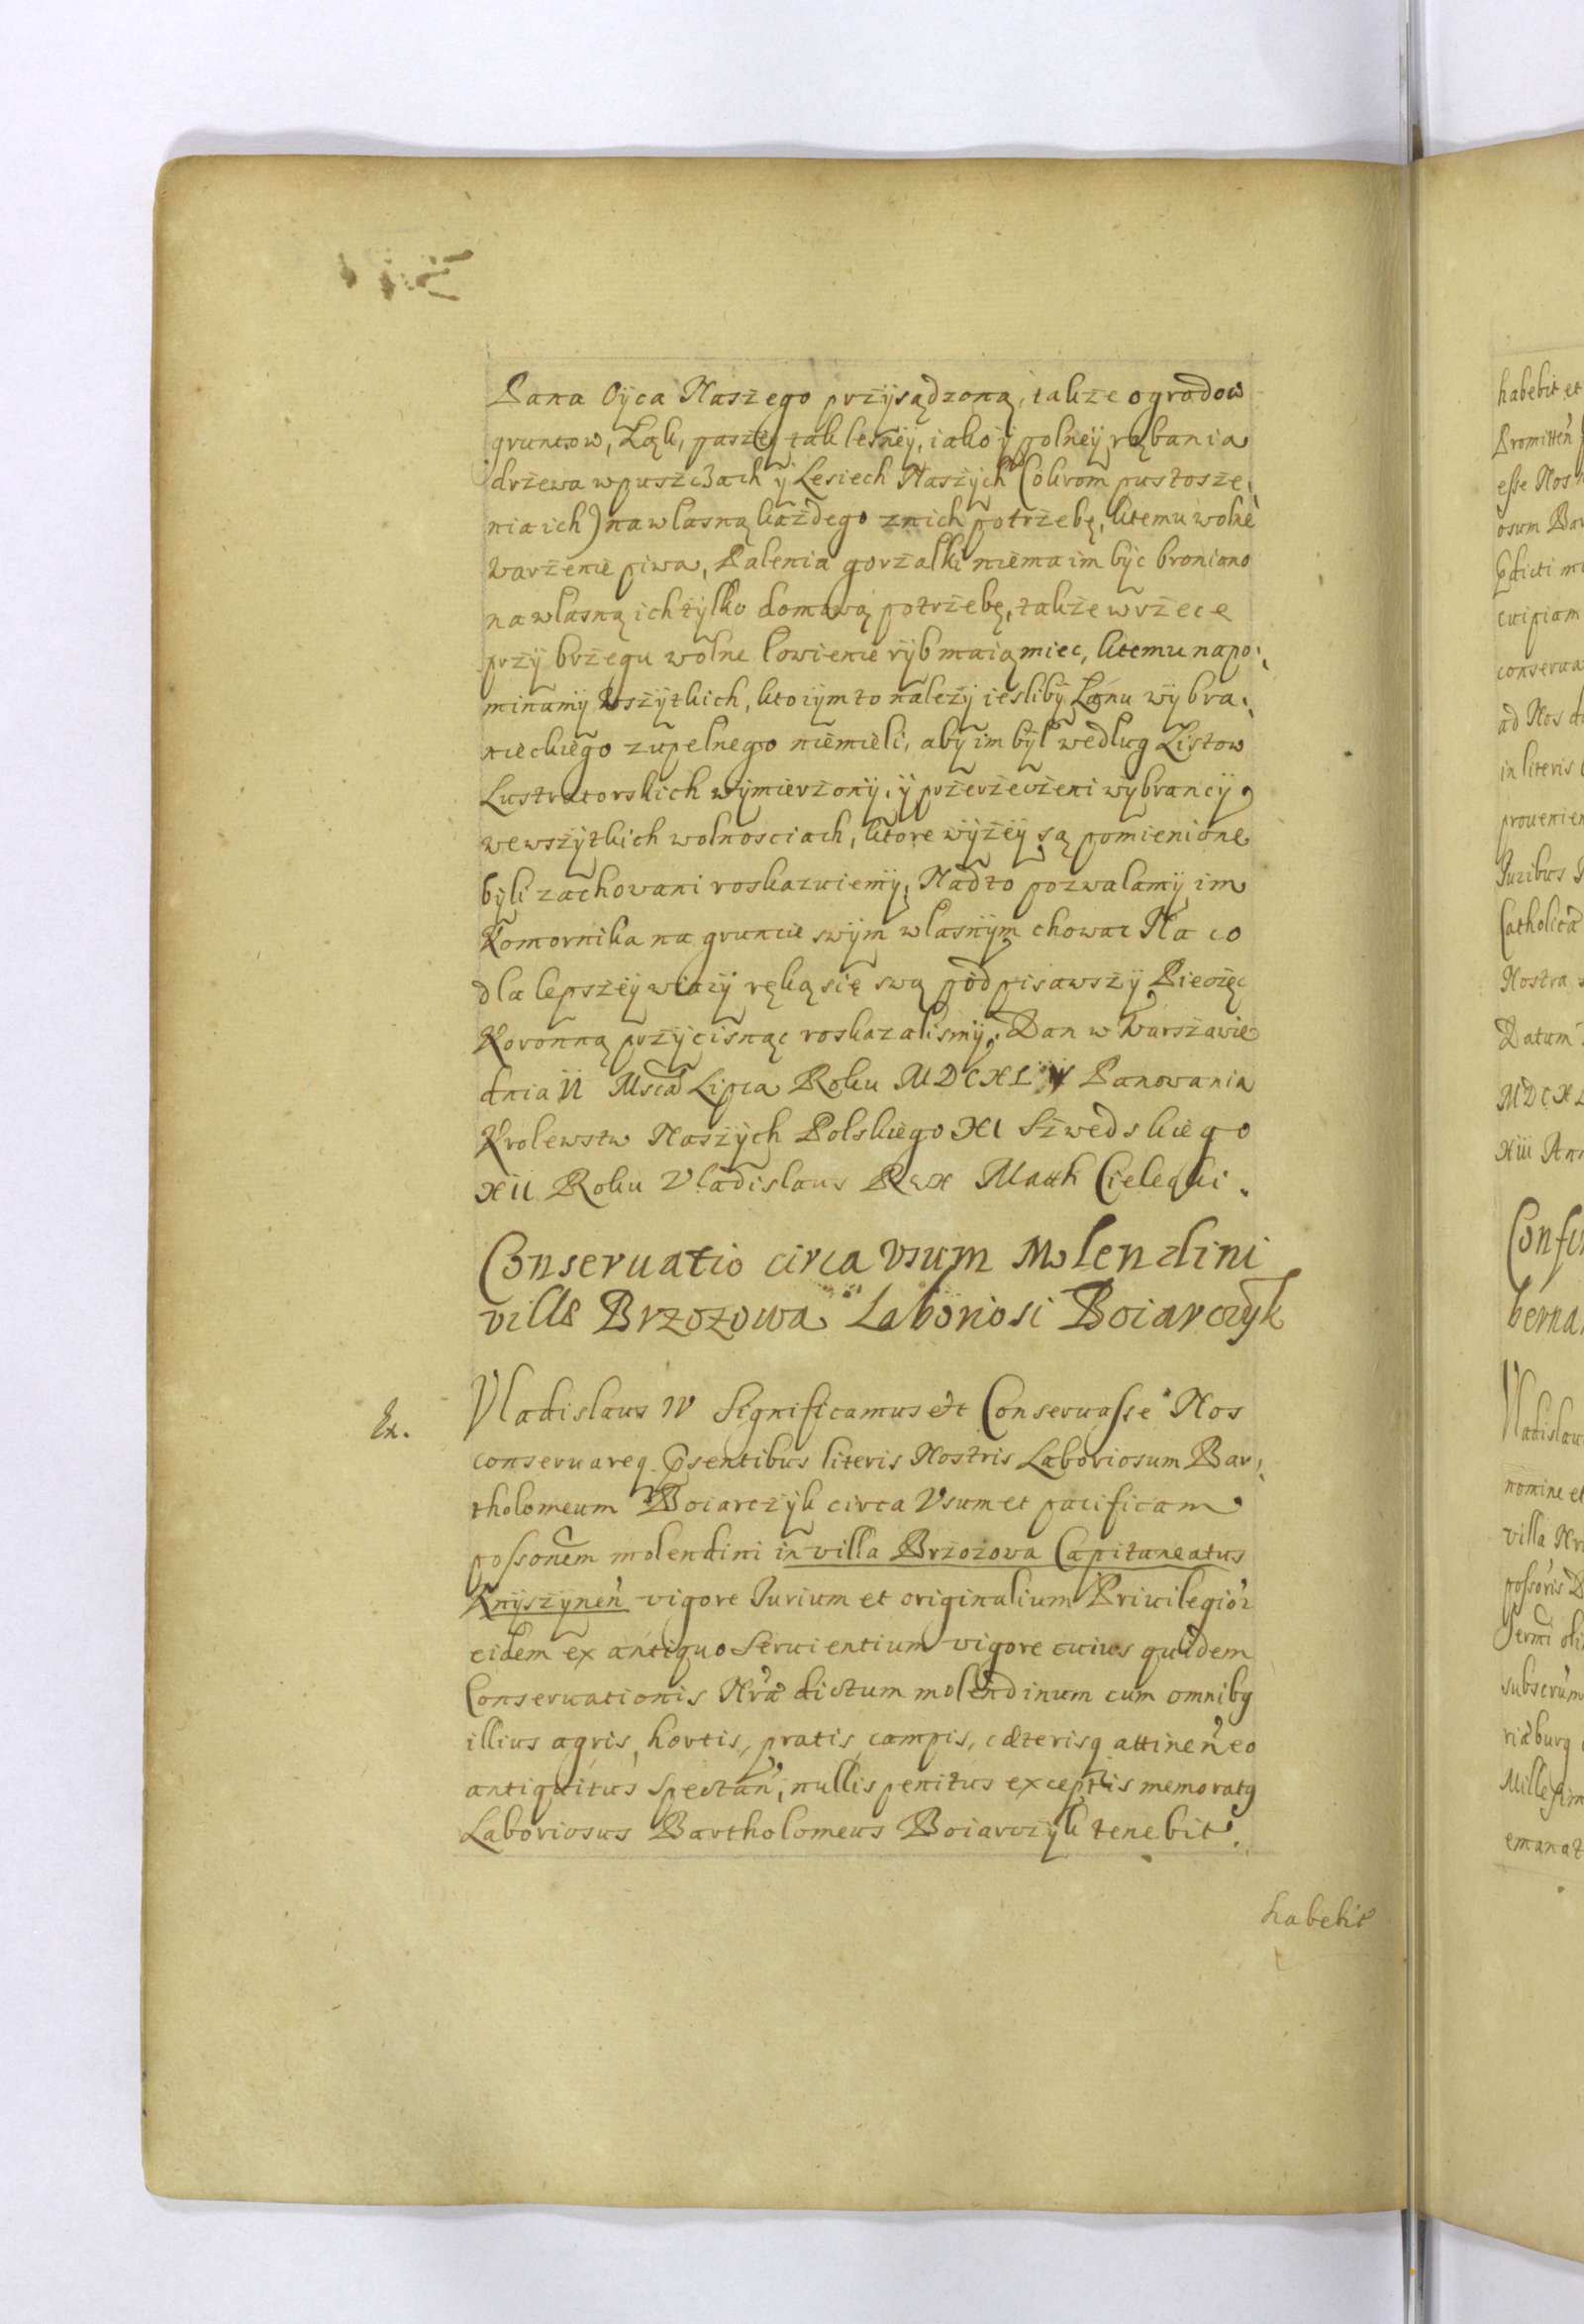 Pana Oÿca Naszego przÿsądzoną, także ogrodow
gruntow, Łąk, paszeÿ tak lesneÿ, iako ÿ polneÿ, rąbania
drzewa w puszczach ÿ Lesiech Naszÿch (okrom pustosze,
nia ich) na własną każdego znich potrzebę, ktemu wolne
warzenie piwa, Palenia gorzałki niema im bÿc broniono
na własną ich tÿlko domową potrzebę, także w rzece
przÿ brzegu wolne łowienie rÿb maią miec, ktemu napo,
minamÿ wszÿtkich, ktorÿm to należÿ iesliby Łanu wÿbra,
nieckiego zupełnego niemieli, abÿ im bÿł według Listow
Lustratorskich wÿmierzonÿ, ÿ przerzeczeni wÿbrancÿ,
wewszÿtkich wolnosciach, ktore wÿżeÿ są pomienione
bÿli zachowani roskazuiemÿ, Nadto pozwalamÿ im
Komornika na gruncie swÿm własnÿm chowac Na co
dla lepszeÿ wiarÿ ręką się swą podpisawszÿ Pieczęc
Koronną przÿcisnąc roskazalismÿ. Dan w Warszawie
dnia II Msca Lipca Roku MDCXL Panowania
Krolewstw Naszÿch Polskiego XI Szwedskiego
XII Roku Vladislaus Rex Matth Cielecki.
Conseruatio circa Vsum Molendini
villæ Brzozowa Laboriosi Boiarczyk
Ex. Vladislaus IV Significamus etc Conseruasse Nos
conseruareq. pſentibus literis Nostris Laboriosum Bar,
tholomeum Boiarczÿk circa Vsum et pacificam
possonem molendini in villa Brzozowa Capitaneatus
Knÿszÿnen vigore Iurium et originalium Priuilegior
eidem ex antiquo Seruientium vigore cuius quidem
Conseruationis Nræ dictum molendinum cum omnibq
illius agris, hortis, pratis, campis, cæterisq attinen eo
antiquitus Spectan, nullis penitus exceptis memoratq
Laboriosus Bartholomeus Boiarczÿk tenebit.
habebit
habebit et
Promitten
esse Nos
osum Bar
pdicti
cuipiam
conserua
ad Nos
in literis
prouenien
Iuribus
Catholica
Nostra
Datum
MDCXL
XIII Ann
Confir
berna
Vladislau
nomine et
villa
possoris
Sermi oli
subscrum
riæburg
Millesim
emanat